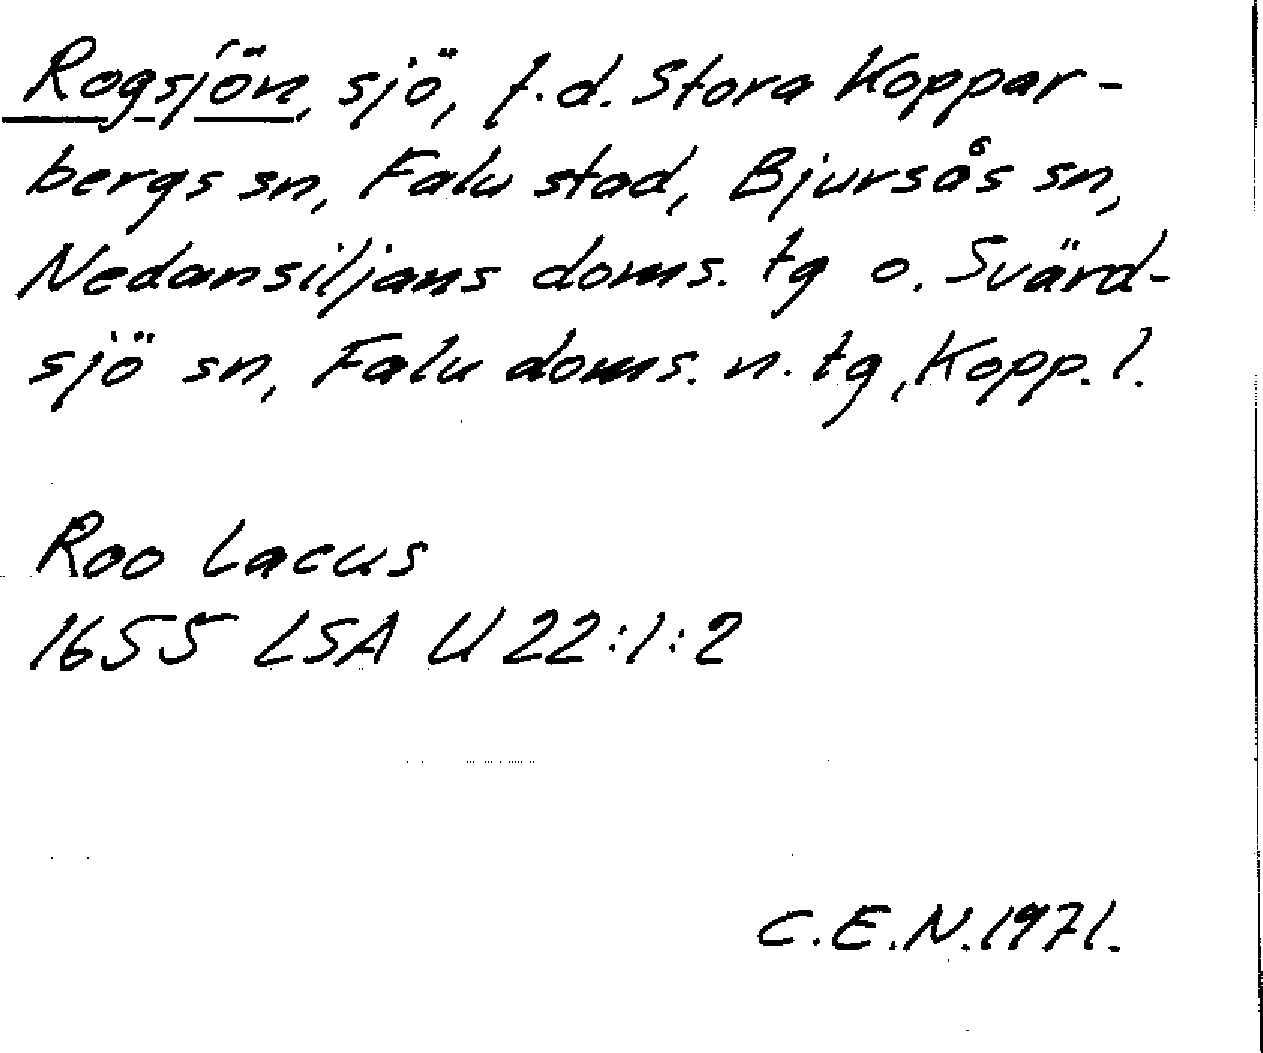 Rogsjön, sjö, f.d. Stora Koppar-
bergs sn, Falu stad, Bjursås sn,
Nedansiljans doms. tg o. Svärd-
sjö sn, Falu doms. n. tg, Kopp. l.
Roo Lacus
1655 LSA U 22:1:2
C.E.N. 1971.